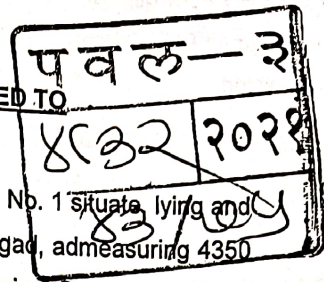 पवल — ३
ED TO
४८३२ २०२१
No. 1 situate, lying and
४३/७५
gad, admeasuring 4350